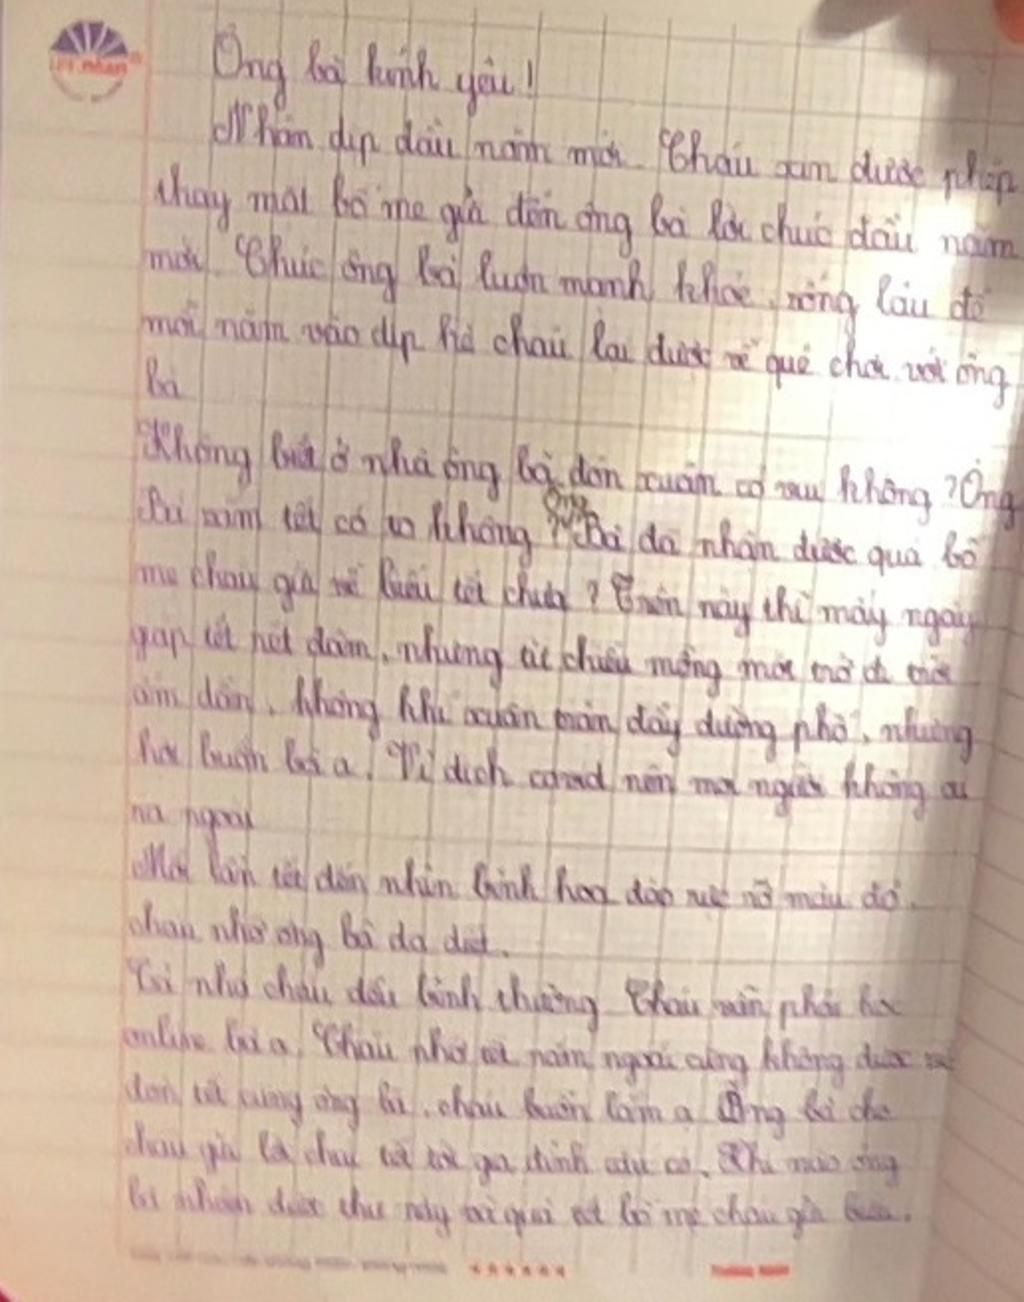 Ông bà kính yêu!
Nhân dịp đầu năm mới. Cháu xin được phép
thay mặt bố mẹ gửi đến ông bà lời chúc đầu năm
mới. Chúc ông bà luôn mạnh khỏe, sống lâu để
mỗi năm vào dịp hè cháu lại được về quê chơi với ông
bà
Không biết ở nhà ông bà đón xuân có vui không? Ông
năm tết có to không? Bà đã nhận được quà bố
mẹ cháu gửi về biếu tết chưa? Trên này thì mấy ngày
giáp tết rét đậm, nhưng từ chiều mồng một trở đi trời
ấm dần, không khí xuân tràn đầy đường phố, nhưng
hơi buồn bà ạ. Vì dịch covid nên mọi người không ai
ra ngoài
Mỗi lần tết đến nhìn cành hoa đào rực rỡ màu đỏ,
cháu nhớ ông bà da diết.
cháu đều bình thường. Cháu vẫn phải học
online bà ạ. Cháu nhớ tết năm ngoái cũng không được về
đón tết cùng ông bà, cháu buồn lắm ạ. Ông bà cho
cháu gửi lời chúc tết tới gia đình cậu. Khi nào ông
bà nhận được thư này và quà tết bố mẹ cháu gửi